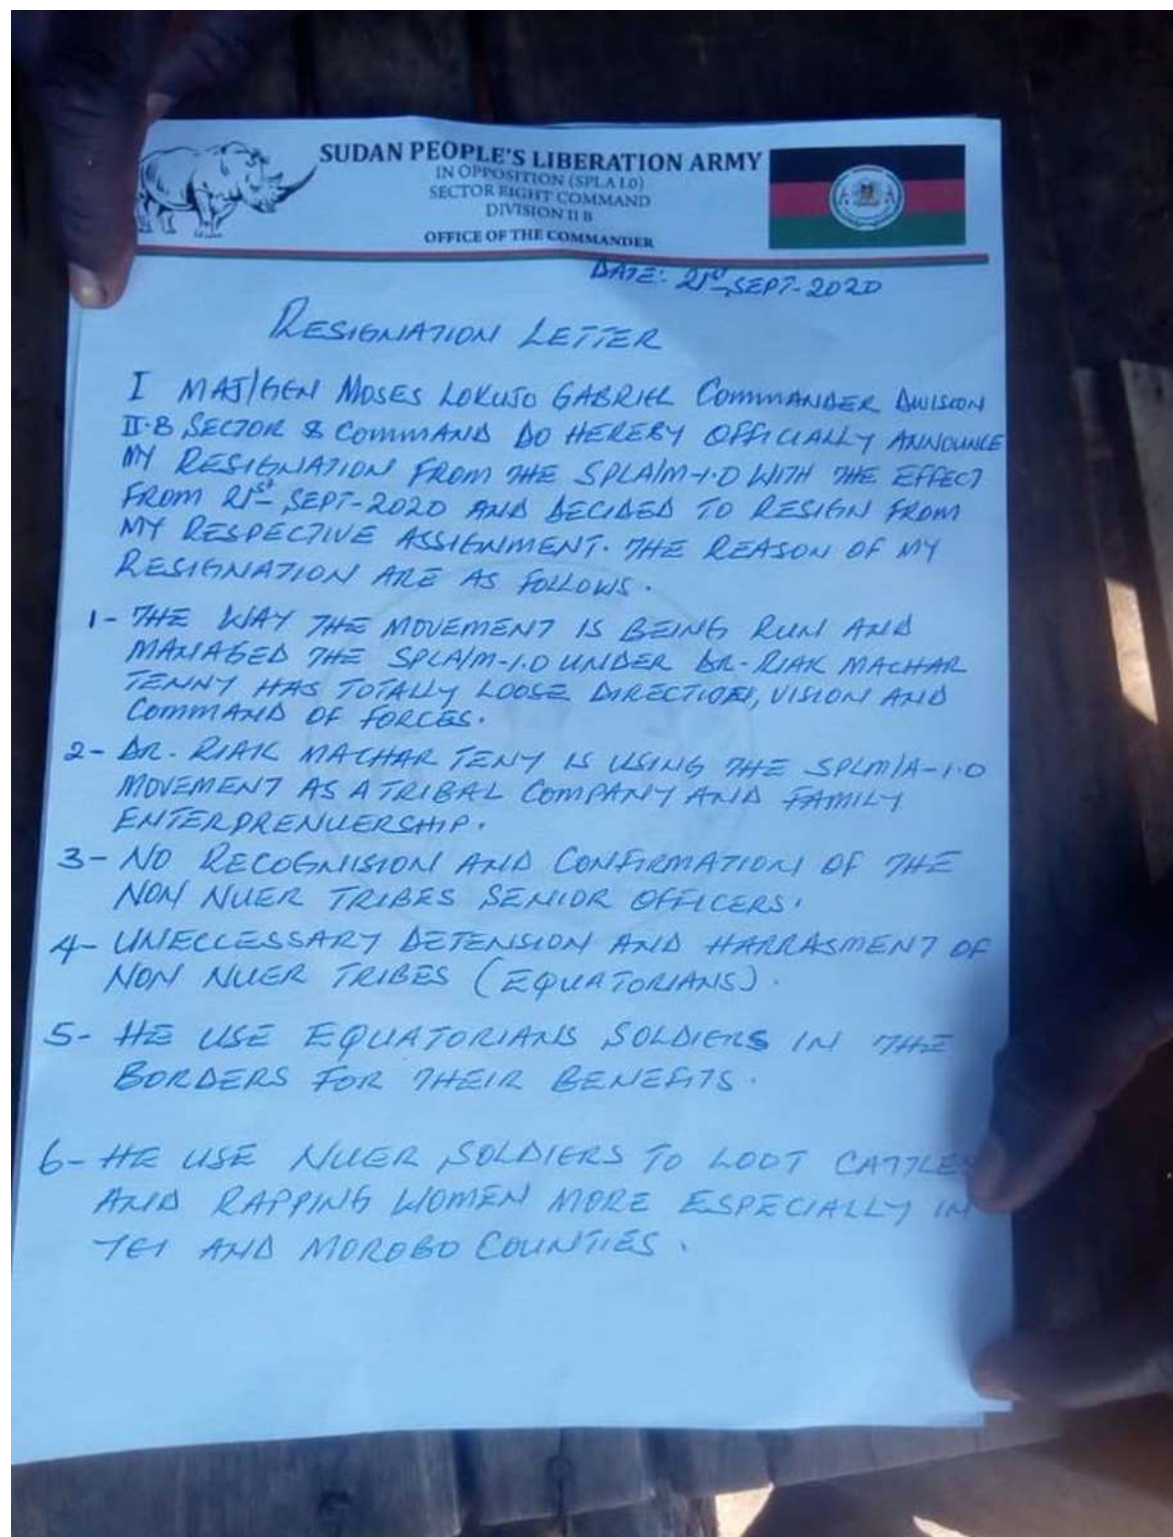 SUDAN PEOPLE'S LIBERATION ARMY
IN OPPOSITION (SPLA I.O)
SECTOR EIGHT COMMAND
DIVISION II B
OFFICE OF THE COMMANDER
DATE: 21st SEPT-2020
RESIGNATION LETTER
I MAJ/GEN MOSES LOKUJO GABRIEL COMMANDER DIVISION
II-B SECTOR 8 COMMAND DO HEREBY OFFICIALLY ANNOUNCE
MY RESIGNATION FROM THE SPLA/M-I.O WITH THE EFFECT
FROM 21st SEPT-2020 AND DECIDED TO RESIGN FROM
MY RESPECTIVE ASSIGNMENT. THE REASON OF MY
RESIGNATION ARE AS FOLLOWS.
1- THE WAY THE MOVEMENT IS BEING RUN AND
MANAGED THE SPLA/M-I.O UNDER DR-RIAK MACHAR
TENNY HAS TOTALLY LOOSE DIRECTION, VISION AND
COMMAND OF FORCES.
2- DR-RIAK MACHAR TENY IS USING THE SPLM/A-I.O
MOVEMENT AS A TRIBAL COMPANY AND FAMILY
ENTERPRENUERSHIP.
3- NO RECOGNISION AND CONFIRMATION OF THE
NON NUER TRIBES SENIOR OFFICERS.
4- UNECCESSARY DETENSION AND HARRASMENT OF
NON NUER TRIBES (EQUATORIANS).
5- HE USE EQUATORIANS SOLDIERS IN THE
BORDERS FOR THEIR BENEFITS.
6- HE USE NUER SOLDIERS TO LOOT CATTLES
AND RAPPING WOMEN MORE ESPECIALLY IN
YEI AND MOROBO COUNTIES.